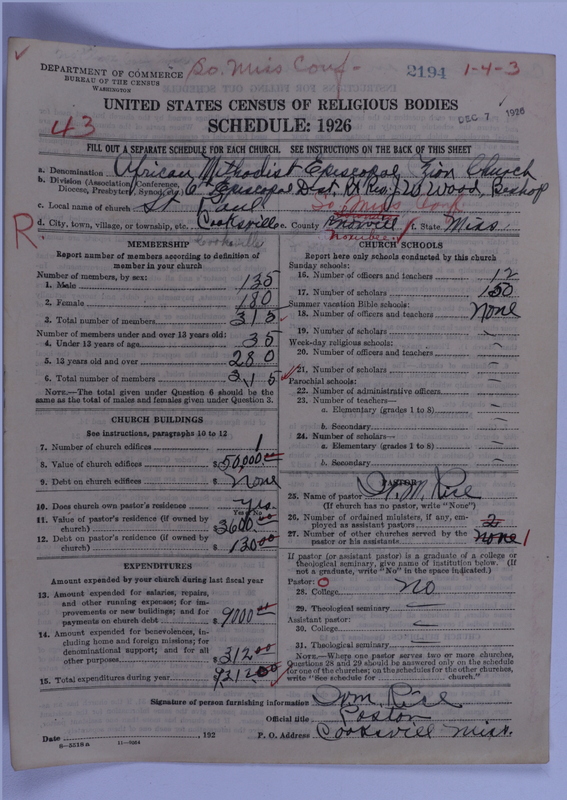 DEPARTMENT OF COMMERCE
BUREAU OF THE CENSUS
WASHINGTON
So. Miss Conf-
2194 1-4-3
UNITED STATES CENSUS OF RELIGIOUS BODIES
DEC 7 1926
43
SCHEDULE: 1926
FILL OUT A SEPARATE SCHEDULE FOR EACH CHURCH. SEE INSTRUCTIONS ON THE BACK OF THIS SHEET
a. Denomination African Methodist Episcopal Zion Church
b. Division (Association, Conference, Diocese, Presbytery, Synod, 6th Episcopal Dist. Rt Rev. J W Wood, Bishop
c. Local name of church St Paul So. Miss Conf
R
d. City, town, village, or township, etc. Cooksville e. County f. State Miss
Cooksville Noxubee
MEMBERSHIP
Report number of members according to definition of member in your church
Number of members, by sex:
1. Male 135
2. Female 180
3. Total number of members 315
Number of members under and over 13 years old:
4. Under 13 years of age 35
5. 13 years old and over 280
6. Total number of members 315
NOTE.—The total given under Question 6 should be the same as the total of males and females given under Question 3.
CHURCH BUILDINGS
See instructions, paragraphs 10 to 12
7. Number of church edifices 1
8. Value of church edifices $50,000.00
9. Debt on church edifices $ None
10. Does church own pastor's residence? Yes
Yes or No
11. Value of pastor's residence (if owned by church) $3600.00
12. Debt on pastor's residence (if owned by church) $ 130.00
EXPENDITURES
Amount expended by your church during last fiscal year
13. Amount expended for salaries, repairs, and other running expenses; for improvements or new buildings; and for payments on church debt $ 9000.00
14. Amount expended for benevolences, including home and foreign missions; for denominational support; and for all other purposes $ 312.00
15. Total expenditures during year 9212.00
CHURCH SCHOOLS
Report here only schools conducted by this church
Sunday schools:
16. Number of officers and teachers 12
17. Number of scholars 150
Summer vacation Bible schools:
18. Number of officers and teachers None
19. Number of scholars
Week-day religious schools:
20. Number of officers and teachers
21. Number of scholars
Parochial schools:
22. Number of administrative officers
23. Number of teachers—
a. Elementary (grades 1 to 8)
b. Secondary
24. Number of scholars—
a. Elementary (grades 1 to 8)
b. Secondary
PASTOR
25. Name of pastor W. M. Rise
(If church has no pastor, write "None")
26. Number of ordained ministers, if any, employed as assistant pastors 2
27. Number of other churches served by the pastor or his assistants None 1
If pastor (or assistant pastor) is a graduate of a college or theological seminary, give name of institution below. (If not a graduate, write "No" in the space indicated.)
Pastor: O
28. College No
29. Theological seminary —
Assistant pastor:
30. College —
31. Theological seminary —
NOTE.—Where one pastor serves two or more churches, Questions 28 and 29 should be answered only on the schedule for one of the churches; on the schedules for the other churches, write "See schedule for church."
Signature of person furnishing information Wm. Rise
Official title Pastor
Date , 192 P. O. Address Cooksvill Miss.
8-3518a 11-9864